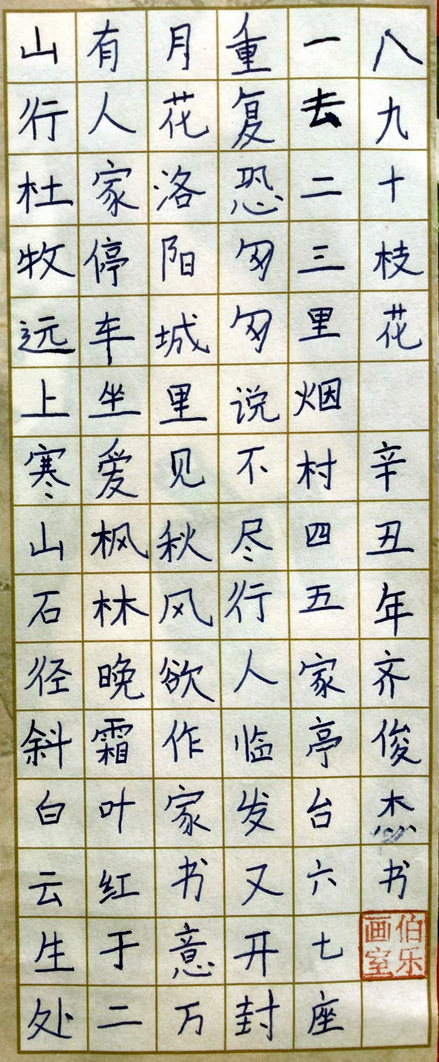 山行杜牧远上寒山石径斜白云生处
有人家停车坐爱枫林晚霜叶红于二
月花洛阳城里见秋风欲作家书意万
重复恐匆匆说不尽行人临发又开封
一去二三里烟村四五家亭台六七座
八九十枝花 辛丑年齐俊杰书
伯乐
画室